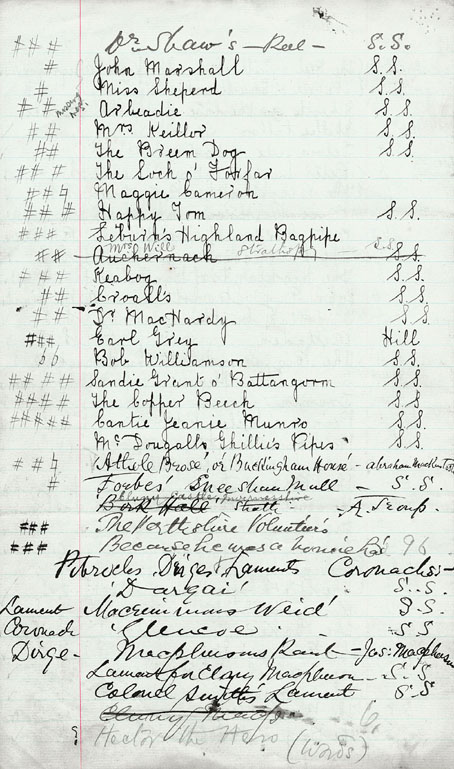 ### Dr Shaw's - Reel - S.S.
# John Marshall S.S.
# Miss Sheperd S.S.
## Arbeadie S.S.
## Mrs Keiller S.S.
## The Breem Dog S.S.
### The Loch o' Forfar
##♮ Maggie Cameron
### Happy Tom S.S.
### Leburn's Highland Bagpipe
Mrs Will S.S.
## Auchernach S.S.
### Kebbog S.S.
## Croall's S.S.
## Dr MacHardy S.S.
### Earl Grey Hill
bb Bob Williamson S.S.
## ## Sandie Grant o' Battangorm S.S.
#### The Copper Beech S.S.
##### Cantie Jeanie Munro S.S.
McDougall's Ghillie's Pipes S.S.
##♮ 'Athole Brose', or 'Buckingham House' -
# Forbes' Sneeshan Mull - S.S.
Hall - A. Troup.
### The Perthshire Volunteers
### Because he was a bonnie lad 96
Pibrochs, Dirges & Laments Coronachs -
'Dargai' S.S.
Lament S.S.
Coronach 'Glencoe' S.S
Dirge - Macphersons Rant - Jas: Macpherson
Lament for Cluny Macpherson - S.S
Colonel Smith's Lament S.S
Cluny 6
Hector the Hero (Words)